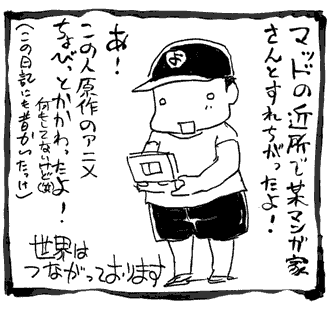 マッドの近所で某マンガ家
さんとすれちがったよ!
あ!
この人原作のアニメ
ちょびっとかかわったよ!
何もしてないけど(笑)
(この日記にも昔かいたっけ)
世界は
つながっております